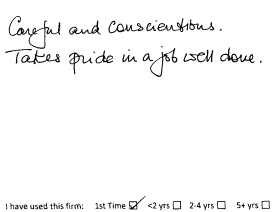 Careful and conscientious.
Takes pride in a job well done.
I have used this firm: 1st Time ☑ <2 yrs ☐ 2-4 yrs ☐ 5+ yrs ☐